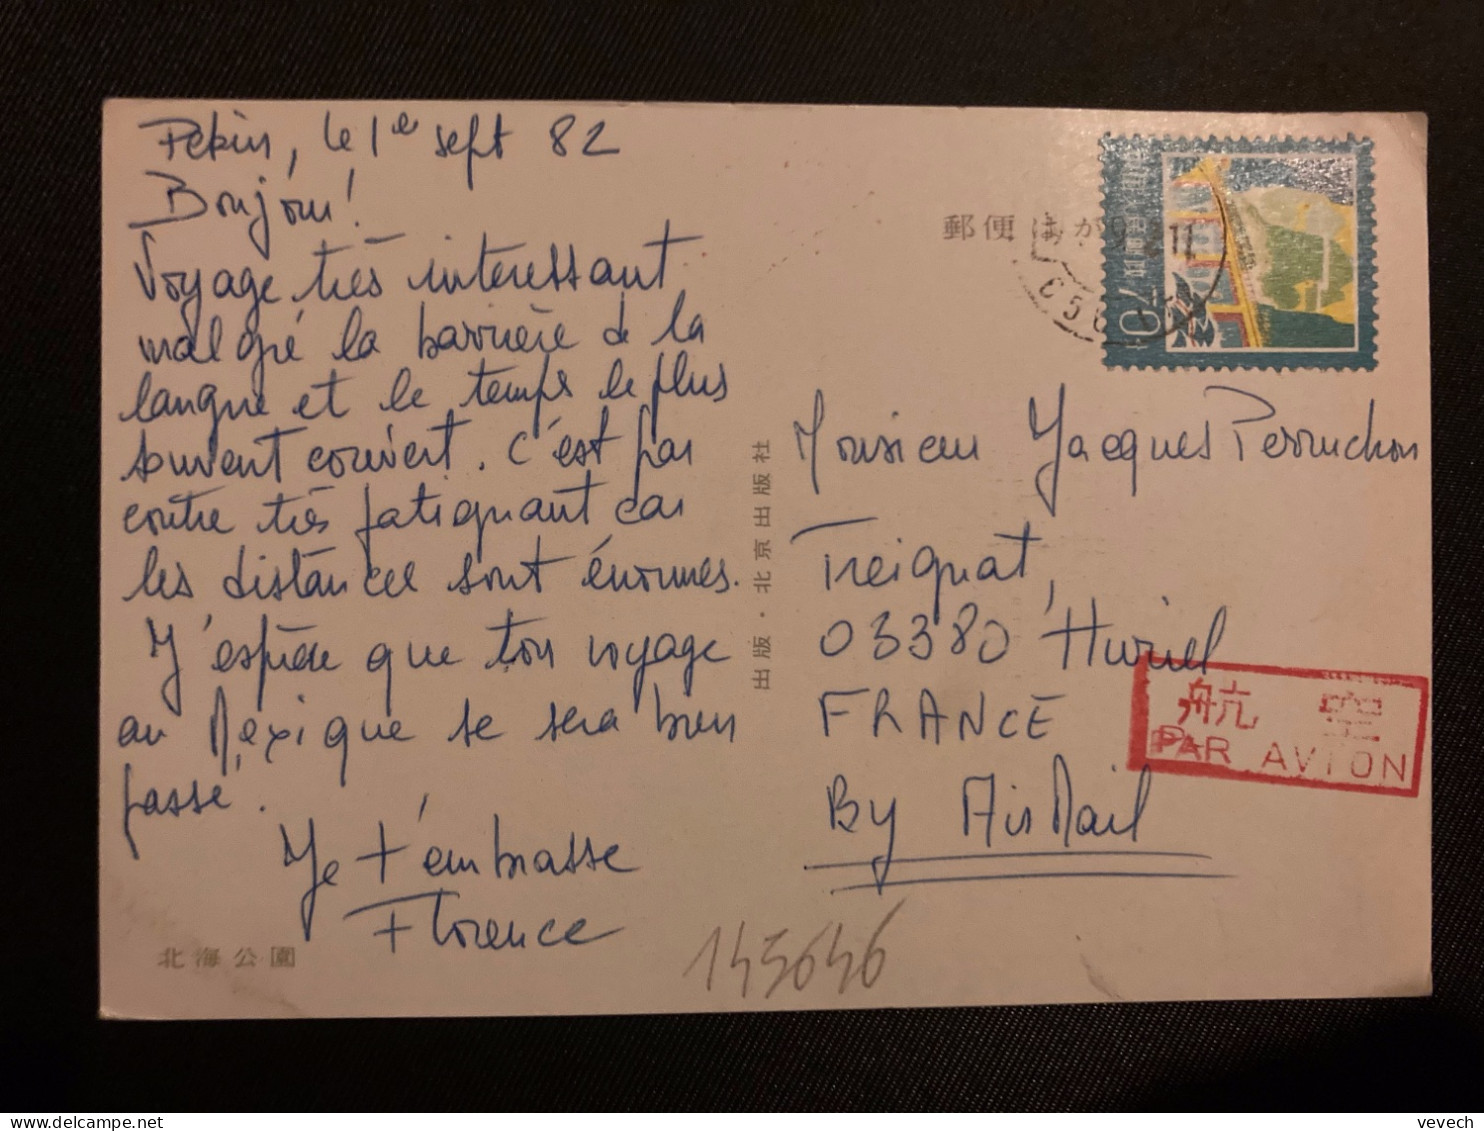 Pekin, le 1e sept 82
Bonjour!
Voyage très interessant
malgré la barrière de la
langue et le temps le plus
souvent couvert. C'est par
contre très fatiguant car
les distances sont énormes.
J'espère que ton voyage
au Mexique se sera bien
passé.
Je t'embrasse
Florence
北海公園
出版・北京出版社
郵便はが
70
Monsieur Jacques Perruchon
Treignat,
03380 Huriel
FRANCE
By Air Mail
航空
PAR AVION
145646
vevech